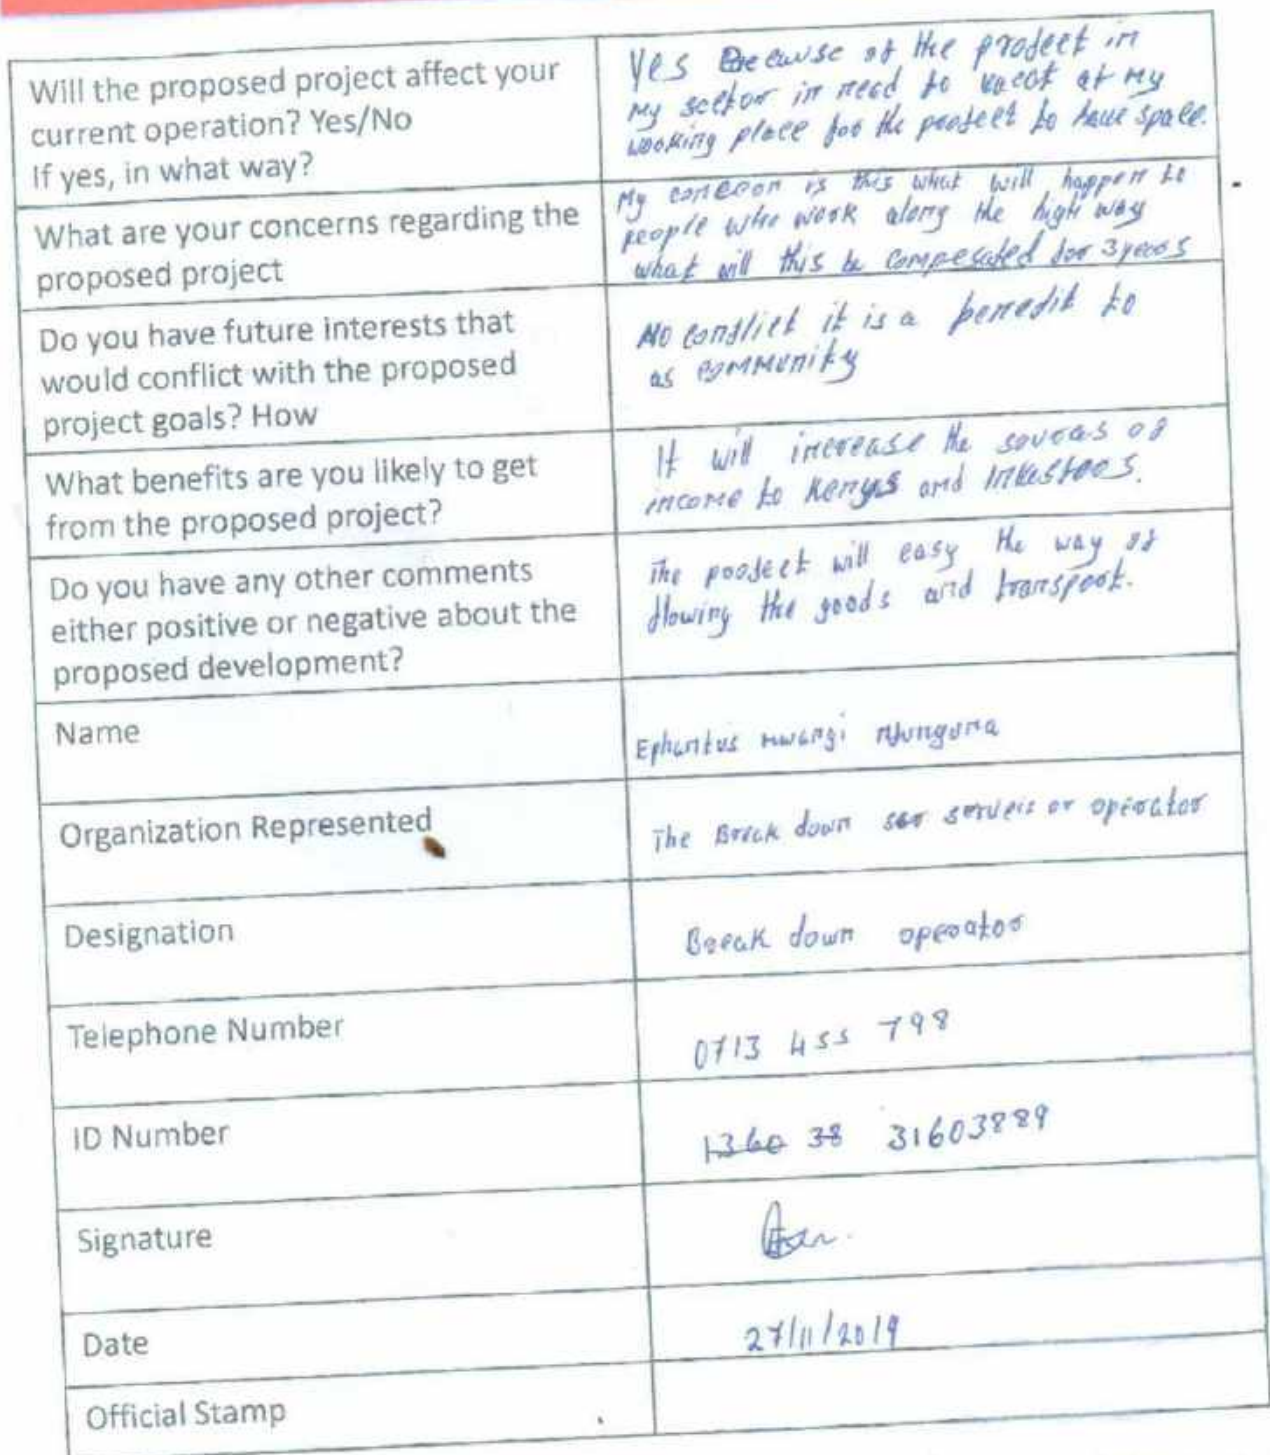 Will the proposed project affect your
current operation? Yes/No
If yes, in what way?
Yes Because of the project in
my sector in need to vacat at my
working place for the project to have space.
What are your concerns regarding the
proposed project
My concron is this what will happen to
people who work along the high way
what will this be compesated for 3 years
Do you have future interests that
would conflict with the proposed
project goals? How
No conflict it is a benefit to
as community
What benefits are you likely to get
from the proposed project?
It will increase the sources of
income to Kenya and Investors.
Do you have any other comments
either positive or negative about the
proposed development?
The project will easy the way of
flowing the goods and transport.
Name
Ephantus mwangi Njunguna
Organization Represented
The Break down serveis or operator
Designation
Break down operator
Telephone Number
0713 455 798
ID Number
1360 38 31603889
Signature
Date
27/11/2019
Official Stamp